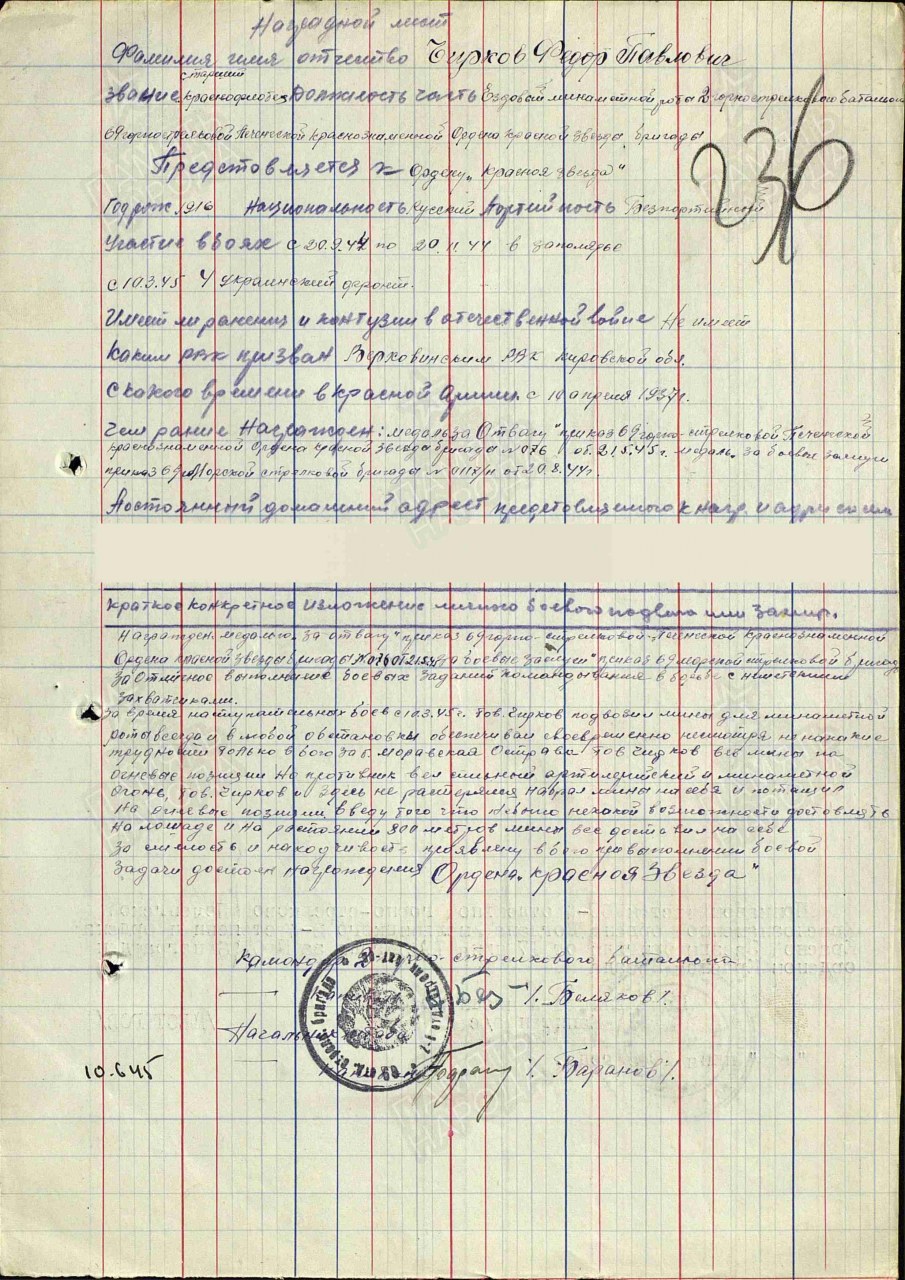 Наградной лист
Фамилия имя отчество Чирков Федор Павлович
старший
Звание краснофлотец Должность часть Ездовой минаметной рота 2 горнострелкового баталион
69 горнострельовой Печенской краснознаменной Ордена Красной Звезда бригады
236
Предстовляется к Ордену „Красная звезда"
Год рож. 1916 Национальность Русский Партийность Безпортийный
Участие в боях с 20.9.44 по 20.11.44 в заполярье
с 10.3.45 4 украинский фронт.
Имеет ли ранения и контузии в отечественной войне Не имеет
Каким РВК призван Верховинским РВК кировской обл.
С какого времени в Красной Армии с 10 апреля 1937г.
Чем ранее Награжден: медаль за Отвагу" приказ 69 горно-стрелковой Печенский
краснознаменной Ордена красной звезда бригада №076 от 21.5.45г. медаль за боевые заслуги
приказ 69 Морской стрелковой бригады № 011/н от 20.8.44г.
Постоянный домашний адрест предстовляемого к нагр. и адрес
краткое конкретное изложение личного боевого подвига или заслуг.
Награжден медалью за отвагу" приказ 69 горно-стрелковой Печенской краснознаменной
Ордена красной звезды бригады №076 от 21.5.45г за боевые заслуги" приказ 69 морской стрелковой бригады
За отличное выполнение боевых заданий командывания в борьбе с немецкими
захватчиками.
За время наступательных боев с 10.3.45г. тов. Чирков подвозил мины для минаметной
роты всегда и в любой обстановки обеспечивал своевременно несмотря не накакие
трудности только в бою за г. Моравская Острава тов Чирков вез мины на
огневые позиции но противник вел сильный артилерийский и минаметной
огонь, тов. Чирков и здесь не растерялся набрал мины на себя и потащил
на огневые позиции введу того что небыло некакой возможности доставлять
на лошаде и на растоянии 800 метров мины все доставил на себе
За смелость и находчивость проявлену в бою при выполнении боевой
задачи достоен награждения Ордена „красная Звезда"
Камандир 2 горно-стрелкового баталиона
/. Беляков /.
Начальник штаба
10.6.45
/. Баранов /.